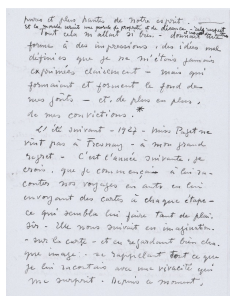 pures et plus hautes de notre esprit.
et la morale serait une parole de propreté et de décence
Tout cela m'allait si bien - donnait une
forme à des impressions, des idées mal
définies que je ne m'étais jamais
exprimées clairement - mais qui
formaient et forment le fond de
mes goûts - et, de plus en plus,
de mes convictions. *
L'été suivant - 1927 - Miss Paget ne
vint pas à Fresnay - à mon grand
regret - C'est l'année suivante, je
crois, que je commençai à lui ra-
conter nos voyages en auto en lui
envoyant des cartes à chaque étape -
ce qui sembla lui faire tant de plai-
sir - Elle nous suivait en imagination
- sur la carte - et en regardant bien cha-
que image - se rappelant tout ce que
je lui racontais avec une vivacité qui
me surprit. Depuis ce moment,